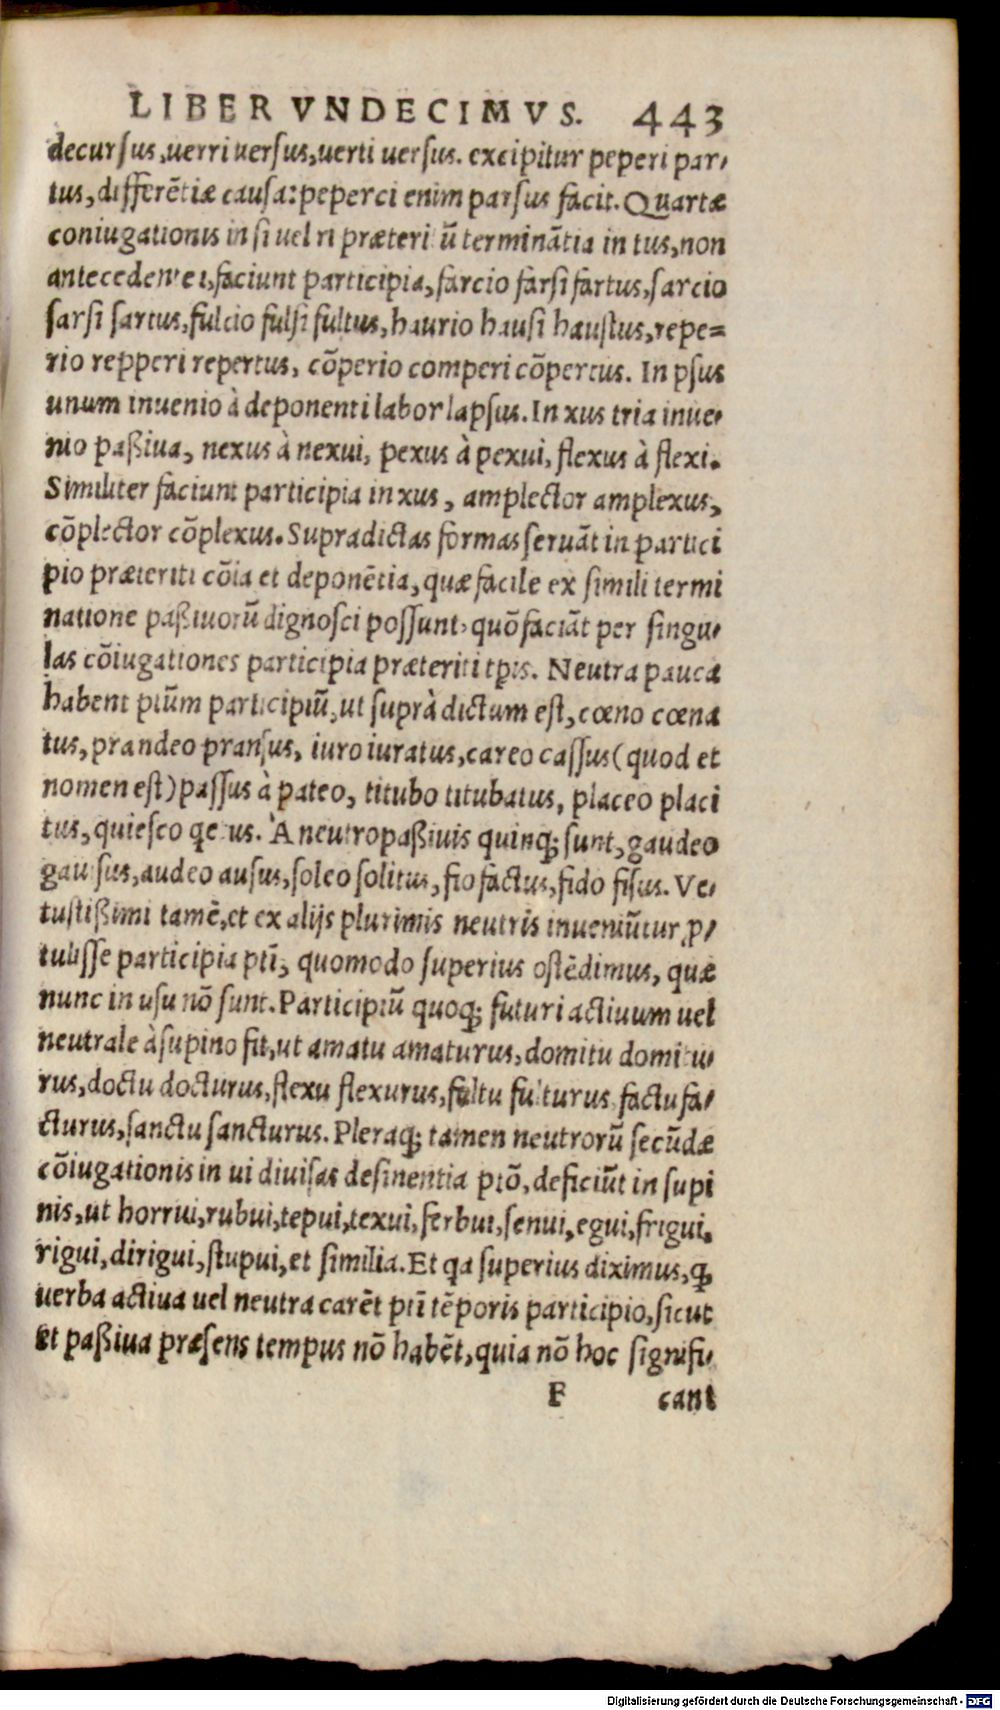 LIBER VNDECIMVS. 443
decursus, uerri uersus, uerti uersus. excipitur peperi par-
tus, differẽtiæ causa: peperci enim parsus facit. Quartæ
coniugationis in si uel ri præteri ũ terminãtia in tus, non
antecedente i, faciunt participia, farcio farsi fartus, sarcio
sarsi sartus, fulcio fulsi fultus, haurio hausi haustus, repe=
rio repperi repertus, cõperio comperi cõpertus. In psus
unum inuenio à deponenti labor lapsus. In xus tria inue-
nio paßiua, nexus à nexui, pexus à pexui, flexus à flexi.
Similiter faciunt participia in xus, amplector amplexus,
cõplector cõplexus. Supradictas formas seruãt in partici
pio præteriti cõia et deponẽtia, quæ facile ex simili termi
natione paßiuorũ dignosci possunt, quõ faciãt per singu-
las cõiugationes participia præteriti tp̃is. Neutra pauca
habent ptũm participiũ, ut suprà dictum est, cœno cœna
tus, prandeo pransus, iuro iuratus, careo cassus (quod et
nomen est) passus à pateo, titubo titubatus, placeo placi
tus, quiesco qe us. A neutropaßiuis quinq; sunt, gaudeo
gauisus, audeo ausus, soleo solitus, fio factus, fido fisus. Ve-
tustißimi tamẽ, et ex alijs plurimis neutris inueniũtur p-
tulisse participia ptĩ, quomodo superius ostẽdimus, quæ
nunc in usu nõ sunt. Participiũ quoq; futuri actiuum uel
neutrale à supino fit, ut amatu amaturus, domitu domitu-
rus, doctu docturus, flexu flexurus, fultu fulturus factu fa-
cturus, sanctu sancturus. Pleraq; tamen neutrorũ secũdæ
cõiugationis in ui diuisas desinentia ptõ, deficiũt in supi
nis, ut horrui, rubui, tepui, texui, ferbui, senui, egui, frigui,
rigui, dirigui, stupui, et similia. Et qa superius diximus, q;
uerba actiua uel neutra carẽt ptĩ tẽporis participio, sicut
et paßiua præsens tempus nõ habẽt, quia nõ hoc signifi-
F cant
Digitalisierung gefördert durch die Deutsche Forschungsgemeinschaft - DFG